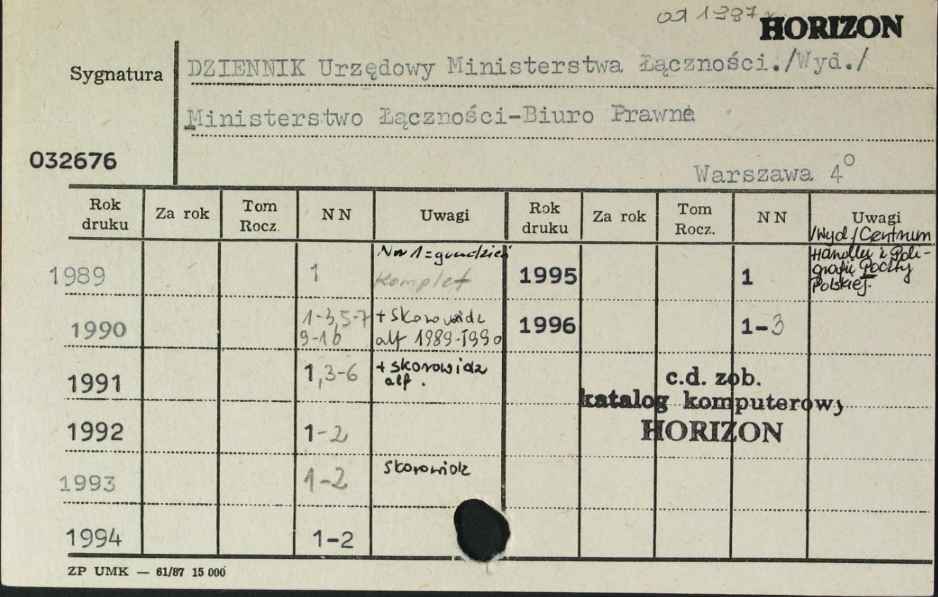 od 1997 r.
HORIZON
Sygnatura
DZIENNIK Urzędowy Ministerstwa Łączności./Wyd./
Ministerstwo Łączności-Biuro Prawne
032676
Warszawa 4°
Rok druku Za rok Tom Rocz. NN Uwagi Rok druku Za rok Tom Rocz. NN Uwagi
/Wyd/Centrum
Handlu i Poli-
grafii Poczty
Polskiej.
1989 1 Nr 1=grudzień 1995 1
komplet
1990 1-3,5-7 + Skorowidz 1996 1-3
9-16 alf 1989-1990
1991 1,3-6 + skorowidz
alf.
c.d. zob.
katalog komputerowy
HORIZON
1992 1-2
1993 1-2 Skorowidz
1994 1-2
ZP UMK — 61/87 15 000